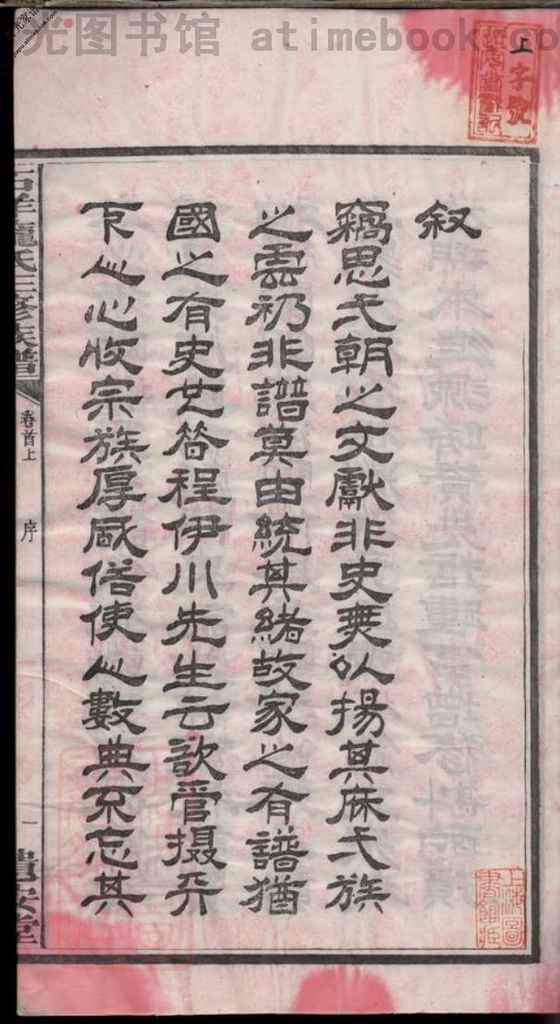 光图书馆 atimebook.co
上字號
叙
竊思弌朝之文獻非史無以揚其庥弌族
之雲礽非譜莫由統其緒故家之有譜猶
國之有史也昔程伊川先生云欲管攝天
下人心收宗族厚風俗使人數典不忘其
龐氏三修族譜
卷首上
序
一
遺安堂
上海圖書館藏